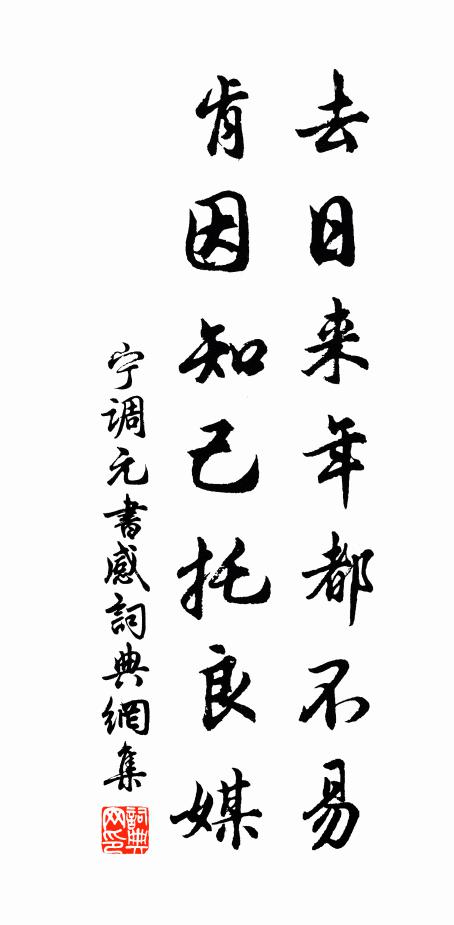 去日来年都不易
肯因知己托良媒
宁调元書感詞典網集
詞典网印